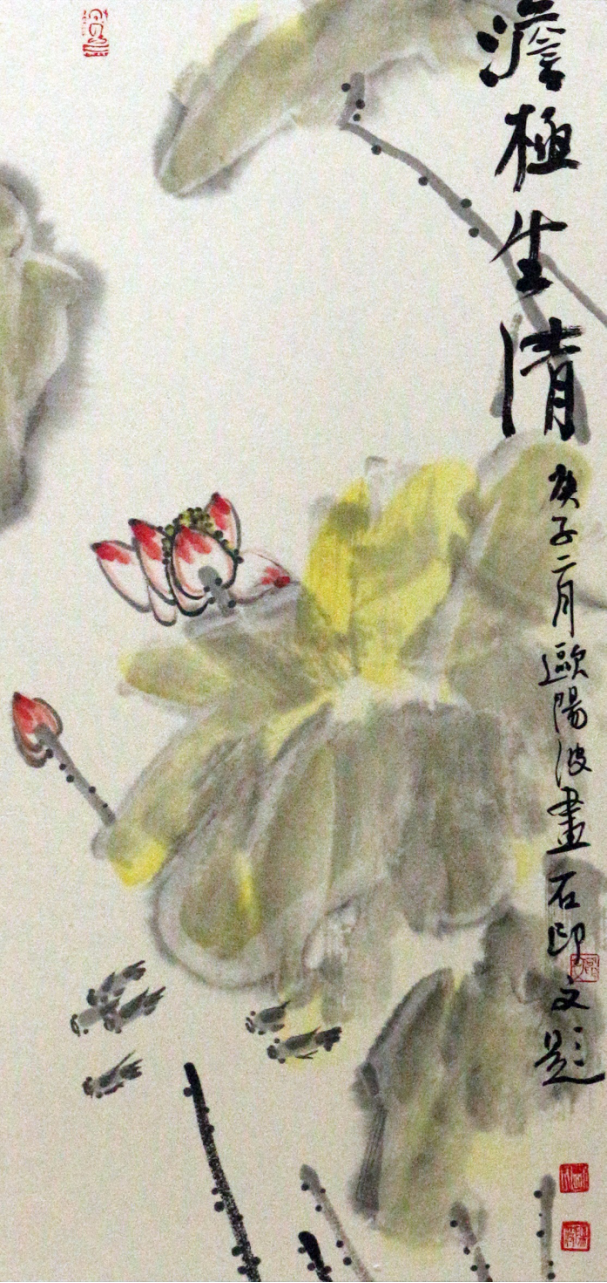 澹極生清
庚子二月歐陽波畫石印文題